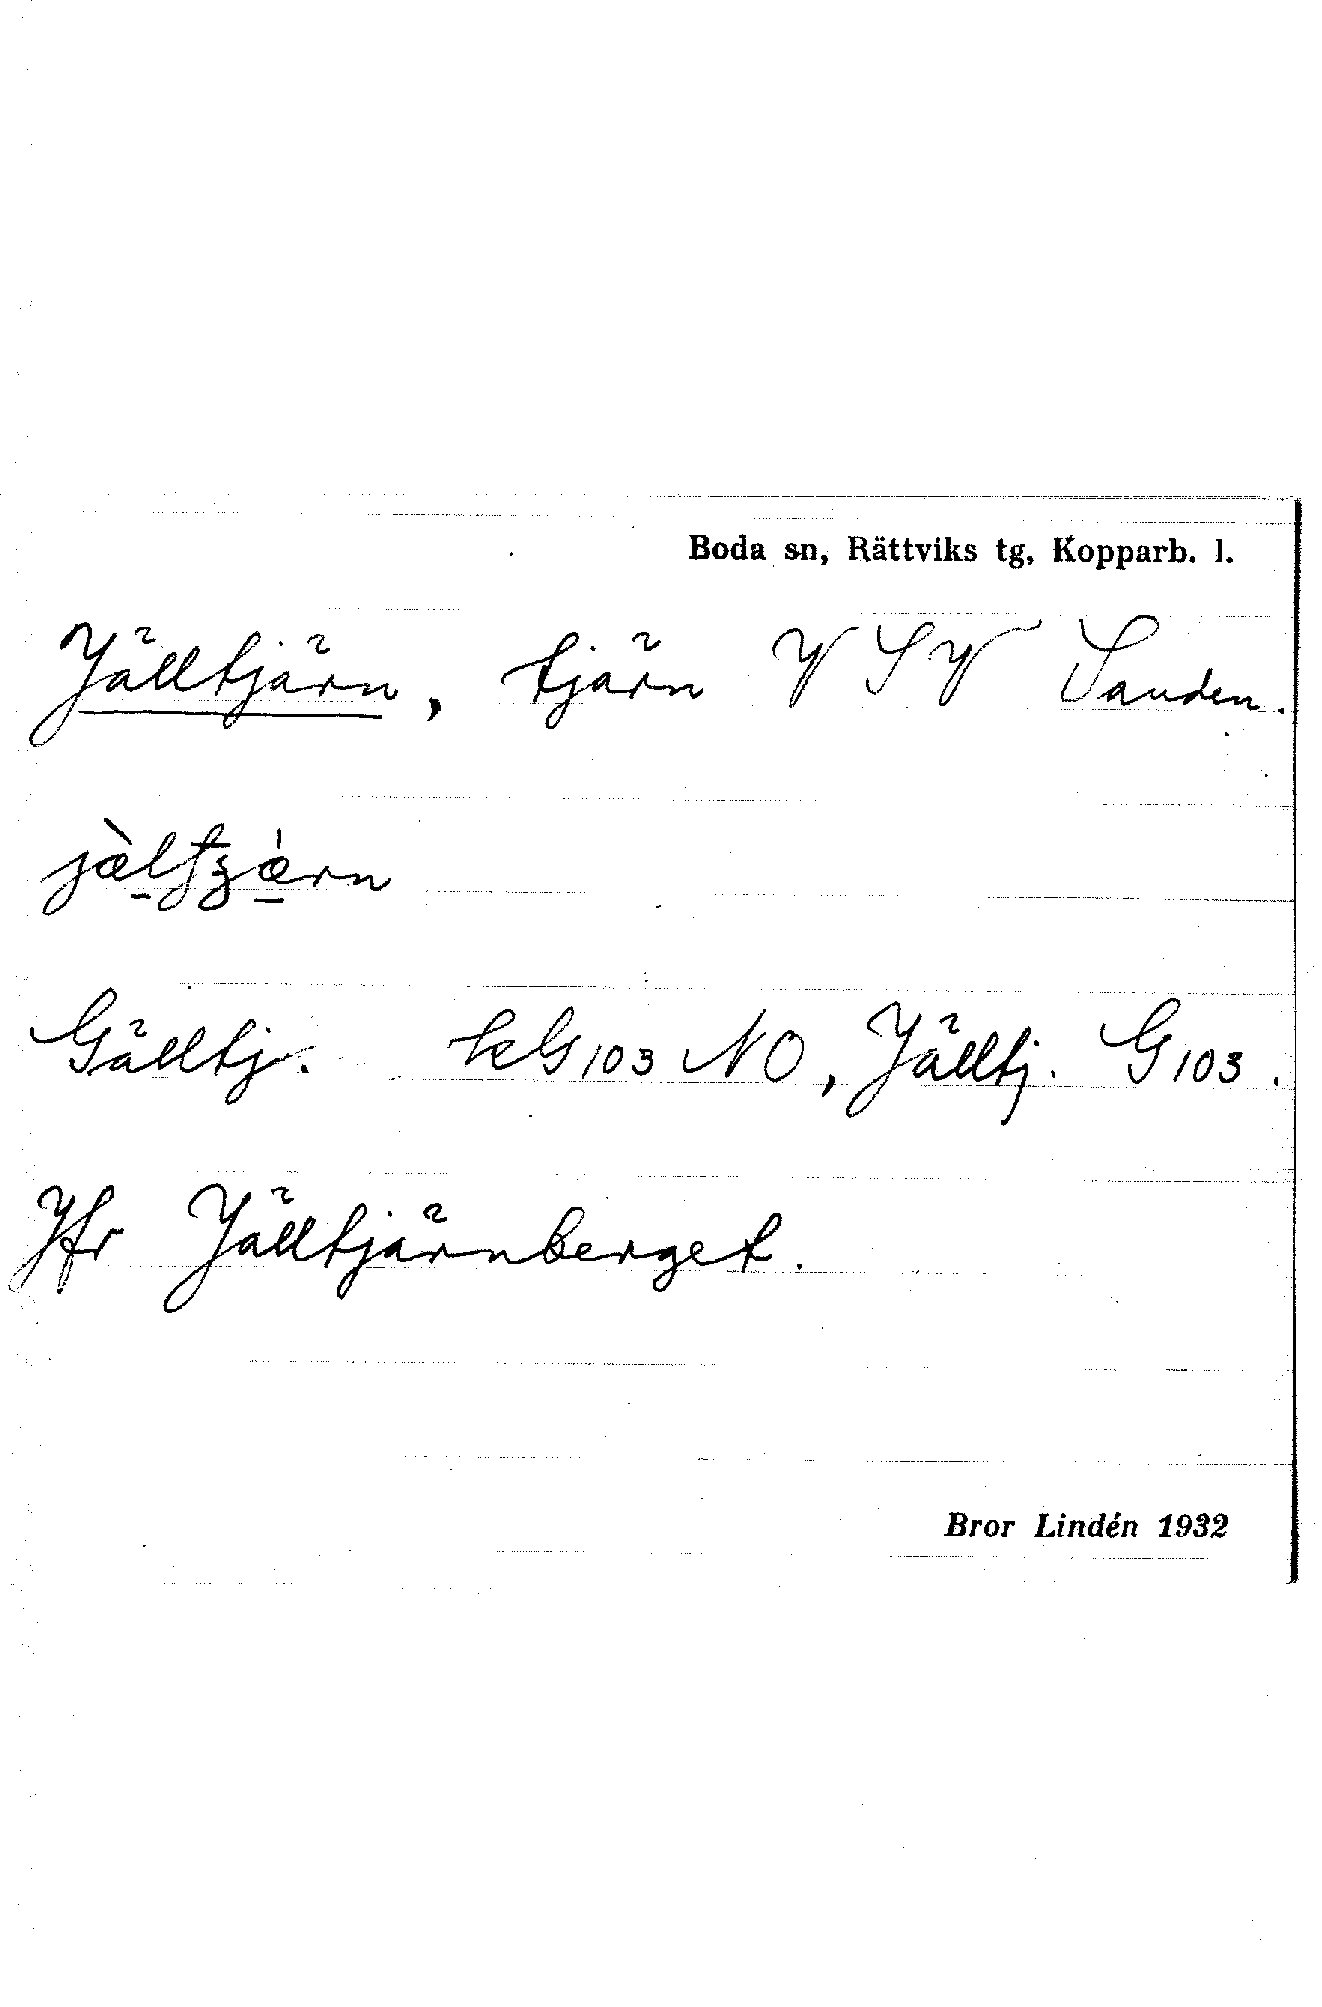 Boda sn, Rättviks tg, Kopparb. l.
Jälltjärn, tjärn VSV Sanden.
Gälltj. kG103 NO, Jälltj. G103.
Jfr Jälltjärnberget.
Bror Lindén 1932